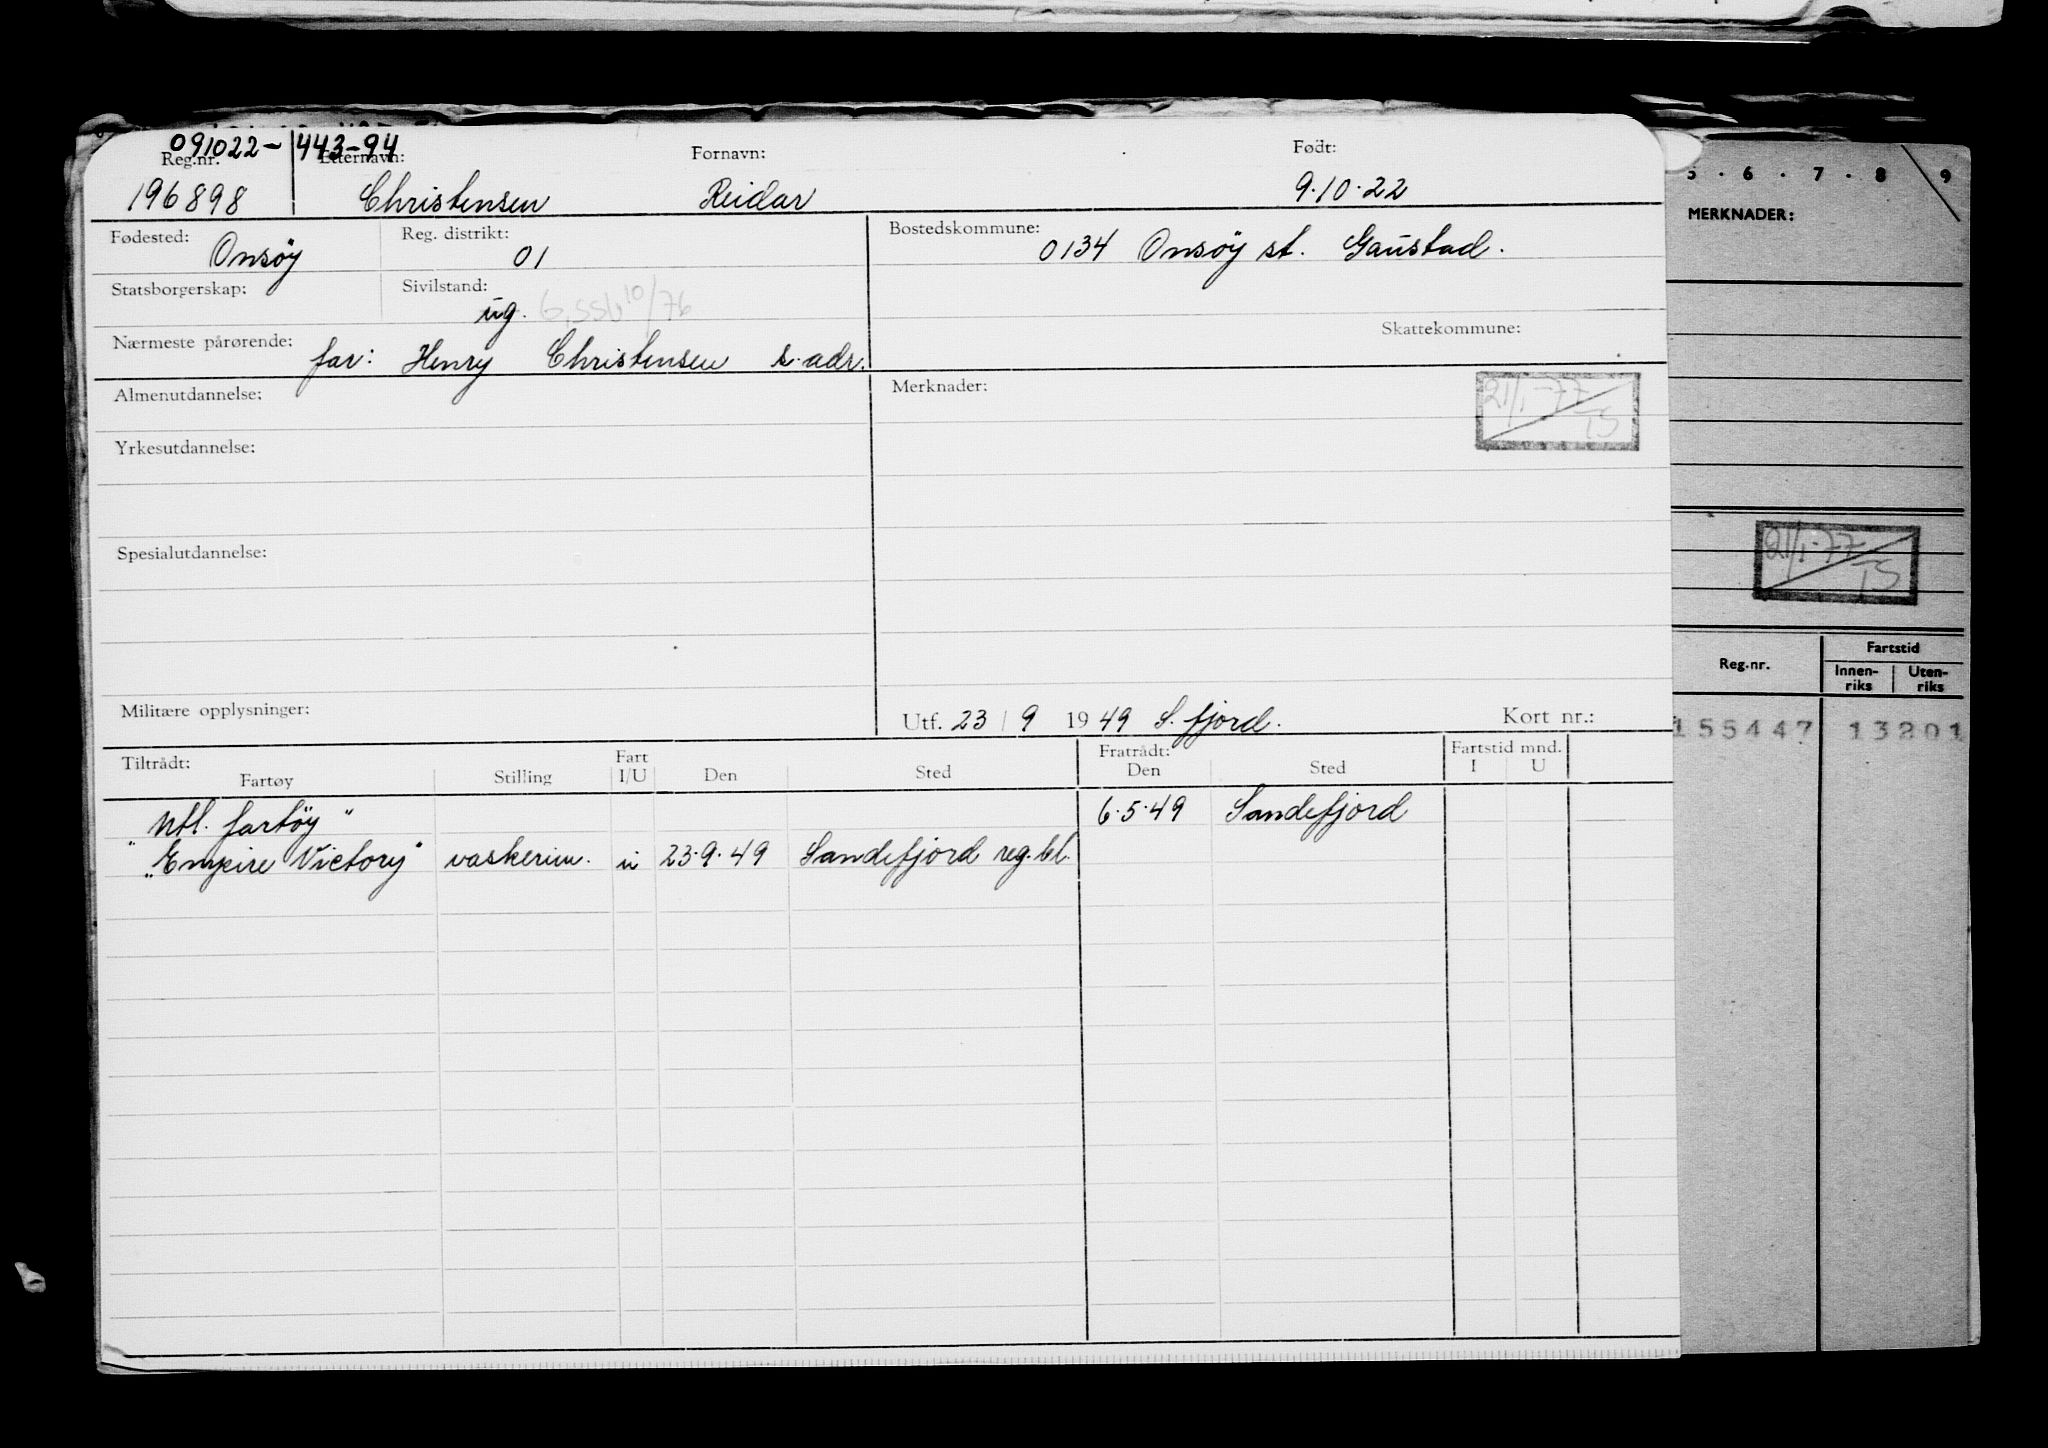 091022-443-94
Reg.nr. Etternavn: Fornavn: Født:
196898 Christensen Reidar 9.10.22
Fødested: Onsöy Reg. distrikt: 01 Bostedskommune: 0134 Onsöy st. Gaustad.
Statsborgerskap: Sivilstand: ug. 10/76
Skattekommune:
Nærmeste pårørende: far: Henry Christensen s. adr.
Almenutdannelse: Merknader: 21/1-77 TS
Yrkesutdannelse:
Spesialutdannelse:
Militære opplysninger: Utf. 23/9 1949 S. fjord. Kort nr.:
Tiltrådt: Fratrådt: Fartstid mnd.
Fartøy Stilling Fart I/U Den Sted Den Sted I U
"Utl. fartöy" 6.5.49 Sandefjord
"Empire Victory" vaskerim. u 23.9.49 Sandefjord reg.bl.
5 . 6 . 7 . 8 9
MERKNADER:
21/1-77 TS
Reg.nr. Fartstid
Innen-riks Uten-riks
155447 13201